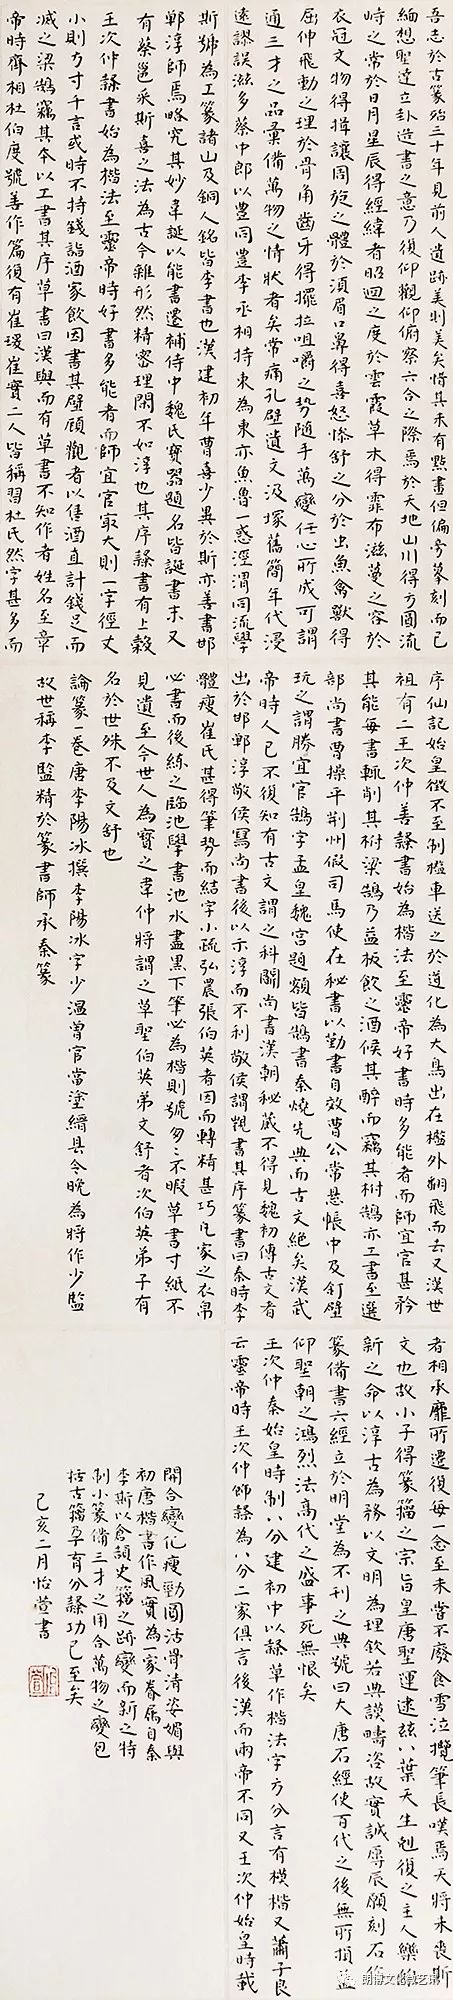 吾志於古篆殆三十年見前人遺跡美則美矣惜其未有點畫但偏旁摹刻而已
緬想聖達立卦造書之意乃復仰觀仰俯察六合之際焉於天地山川得方圓流
峙之常於日月星辰得經緯者昭回之度於雲霞草木得霏布滋蔓之容於
衣冠文物得揖讓周旋之體於須眉口鼻得喜怒慘舒之分於虫魚禽獸得
屈伸飛動之理於骨角齒牙得擺拉咀嚼之勢隨手萬變任心所成可謂
通三才之品彙備萬物之情狀者矣常痛孔壁遺文汲塚舊簡年代浸
遠謬誤滋多蔡中郎以豊同豐李丞相持束為束亦魚魯一惑涇渭同流學
者相承靡所遷復每一念至未嘗不廢食雪泣攬筆長嘆焉天將未喪斯
文也故小子得篆籀之宗旨皇唐聖運逮玆八葉天生剋復之主人樂維
新之命以淳古為務以文明為理欽若典謨疇咨故實誠辱辰願刻石作
篆備書六經立於明堂為不刊之典號曰大唐石經使百代之後無所損益
仰聖朝之鴻烈法高代之盛事死無恨矣
王次仲秦始皇時制八分建初中以隸草作楷法字方分言有模楷又蕭子良
云靈帝時王次仲飾隸為八分二家俱言後漢而兩帝不同又王次仲始皇時載
序仙記始皇徵不至制檻車送之於道化為大鳥出在檻外翻飛而去又漢世
祖有二王次仲善隸書始為楷法至靈帝好書時多能者而師宜官甚矜
其能每書輒削其柎梁鵠乃益板飲之酒候其醉而竊其柎鵠亦工書至選
部尚書曹操平荆州假司馬使在秘書以勤書自效曹公常懸帳中及釘壁
玩之謂勝宜官鵠字孟皇魏宮題額皆鵠書秦燒先典而古文絕矣漢武
帝時人已不復知有古文謂之科斗尚書漢朝秘藏不得見魏初傳古文者
出於邯鄲淳敬侯寫尚書後以示淳而不利敬侯謂觀書其序篆書曰秦時李
斯號為工篆諸山及銅人銘皆李書也漢建初年曹喜少異於斯亦善書邯
鄲淳師焉略究其妙韋誕以能書遷補侍中魏氏寶器題名皆誕書末又
有蔡邕采斯喜之法為古今雜形然精密理閑不如淳也其序隸書有上穀
王次仲隸書始為楷法至靈帝時好書多能者而師宜官取大則一字徑丈
小則方寸千言或時不持錢詣酒家飲因書其壁顧觀者以售酒直計錢足而
滅之梁鵠竊其本以工書其序草書曰漢興而有草書不知作者姓名至章
帝時齊相杜伯度號善作篇復有崔瑗崔實二人皆稱習杜氏然字甚多而
體瘦崔氏甚得筆勢而結字小疏弘農張伯英者因而轉精甚巧凡家之衣帛
必書而後練之臨池學書池水盡黑下筆必為楷則號匆匆不暇草書寸紙不
見遺至今世人為寶之韋仲將謂之草聖伯英弟文舒者次伯英弟子有
名於世殊不及文舒也
論篆一卷唐李陽冰撰李陽冰字少溫曾官當塗縉縣令晚為將作少監
故世稱李監精於篆書師承秦篆
開合變化瘦勁圓活骨清姿媚與
初唐楷書作風實為一家眷屬自秦
李斯以倉頡史籀之跡變而新之特
制小篆備三才之用合萬物之變包
括古籀孕育分隸功已至矣
己亥二月怡萱書
朗博文化微藝術